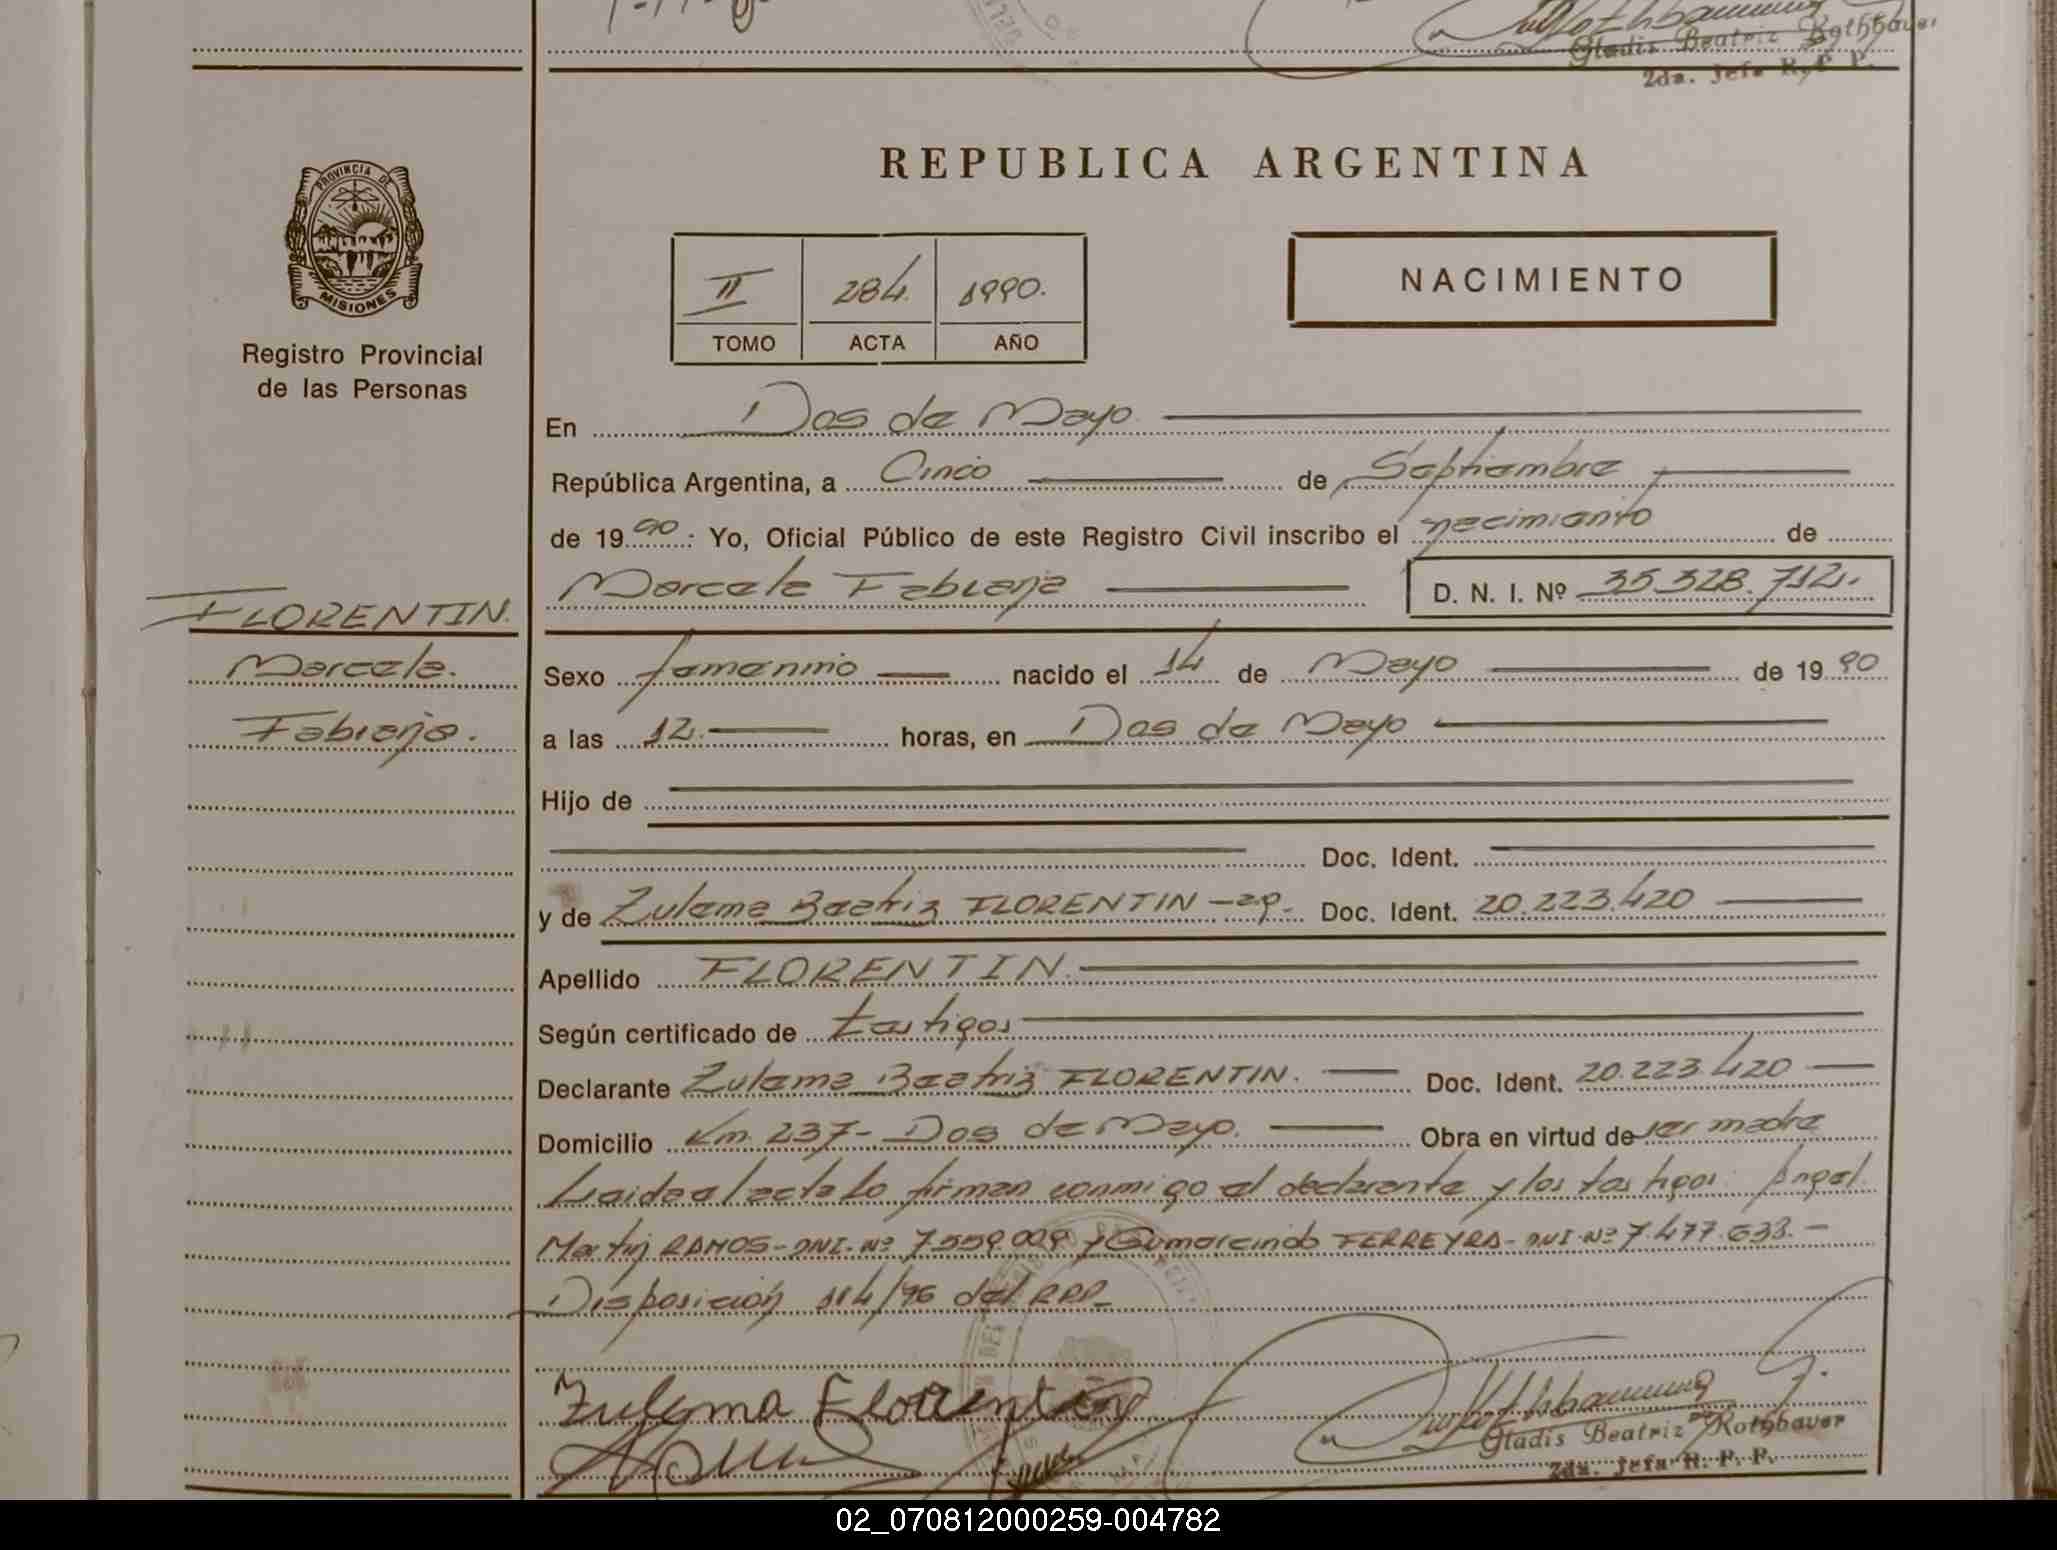 Gladis Beatriz Rothbauer
2da. Jefa R. P. P.
PROVINCIA DE
MISIONES
Registro Provincial
de las Personas
REPUBLICA ARGENTINA
II 284. 1990.
TOMO ACTA AÑO
NACIMIENTO
En Dos de Mayo
República Argentina, a Cinco de Septiembre
de 1990: Yo, Oficial Público de este Registro Civil inscribo el nacimiento de
Marcela Fabiana D. N. I. Nº 35.328.712.
FLORENTIN.
Marcela.
Fabiana.
Sexo femenino nacido el 14 de Mayo de 1990
a las 12. horas, en Dos de Mayo
Hijo de
Doc. Ident.
y de Zulema Beatriz FLORENTIN Doc. Ident. 20.223.420
Apellido FLORENTIN.
Según certificado de testigos
Declarante Zulema Beatriz FLORENTIN. Doc. Ident. 20.223.420
Domicilio Km. 237- Dos de Mayo. Obra en virtud de ser madre
Leida el acta lo firman conmigo el declarante y los testigos: Angel
Martin RAMOS- DNI. Nº 7.559.009 y Gumarcindo FERREYRA- DNI Nº 7.477.633.-
Disposición 114/96 del RPP-
Zulema Florentin
Gladis Beatriz Rothbauer
2da. Jefa R. P. P.
02_070812000259-004782